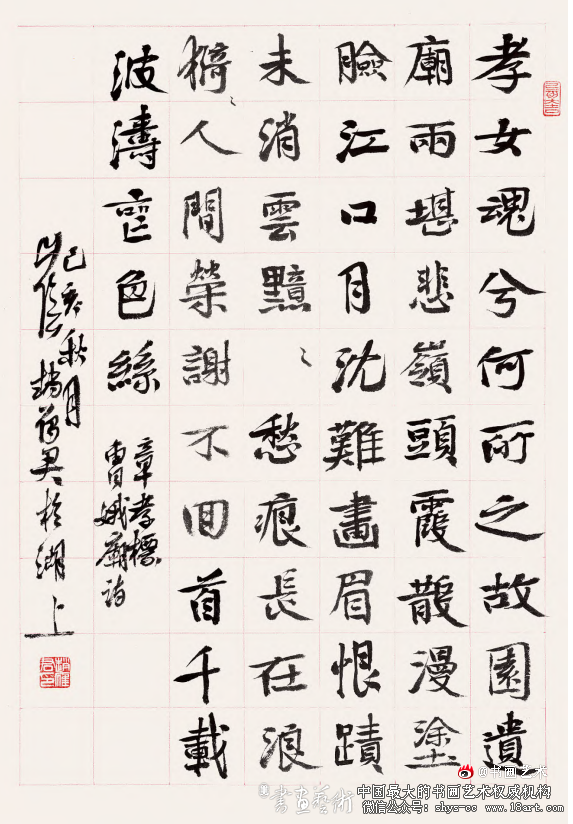 孝女魂兮何所之故園遺
廟兩堪悲嶺頭霞散漫塗
臉江口月沈難畫眉恨蹟
未消雲黯〻愁痕長在浪
猗〻人間榮謝不回首千載
波濤色絲
章孝標
曹娥廟詩
己亥秋月
山陰趙雁君於湖上
@书画艺术
書畫藝術
中国最大的书画艺术权威机构
微信公众号：shys-cc www.18art.com